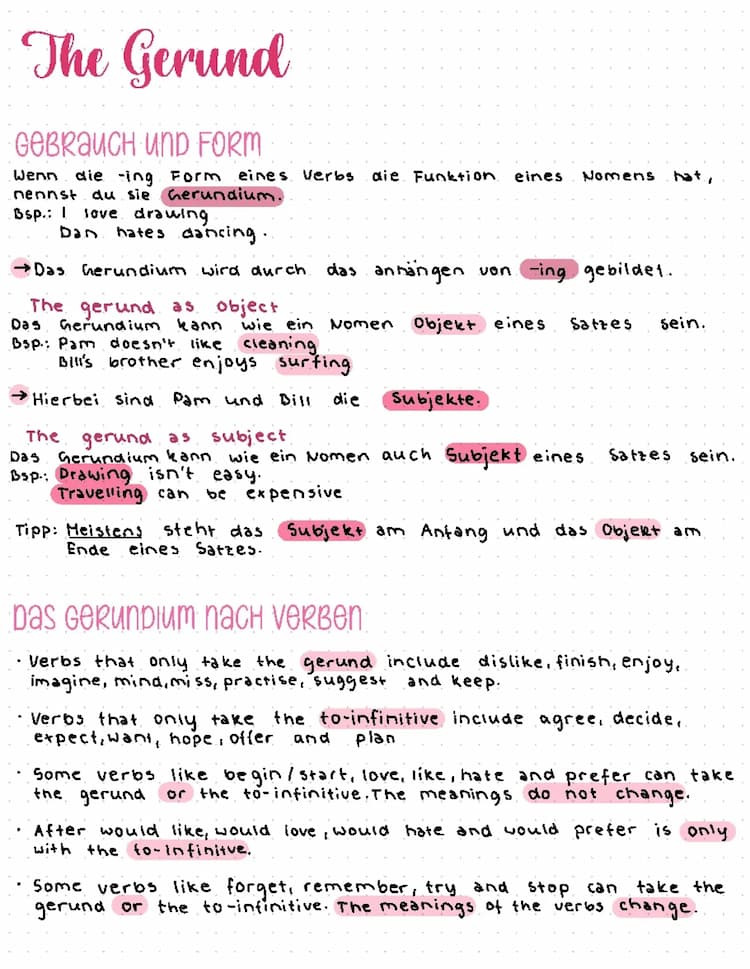 The Gerund
GEBRAUCH UND FORM
Wenn die -ing Form eines Verbs die Funktion eines Nomens hat,
nennst du sie Gerundium.
Bsp.: I love drawing
Dan hates dancing.
→ Das Gerundium wird durch das anhängen von -ing gebildet.
The gerund as object
Das Gerundium kann wie ein Nomen Objekt eines Satzes sein.
Bsp.: Pam doesn't like cleaning
Bill's brother enjoys surfing
→ Hierbei sind Pam und Bill die Subjekte.
The gerund as subject
Das Gerundium kann wie ein Nomen auch Subjekt eines Satzes sein.
Bsp.: Drawing isn't easy.
Travelling can be expensive
Tipp: Meistens steht das Subjekt am Anfang und das Objekt am
Ende eines Satzes.
DAS GERUNDIUM NACH VERBEN
· Verbs that only take the gerund include dislike, finish, enjoy,
imagine, mind, miss, practise, suggest and keep.
· Verbs that only take the to-infinitive include agree, decide,
expect, want, hope, offer and plan
· Some verbs like begin/start, love, like, hate and prefer can take
the gerund or the to-infinitive. The meanings do not change.
· After would like, would love, would hate and would prefer is only
with the to-infinitve.
· Some verbs like forget, remember, try and stop can take the
gerund or the to-infinitive. The meanings of the verbs change.